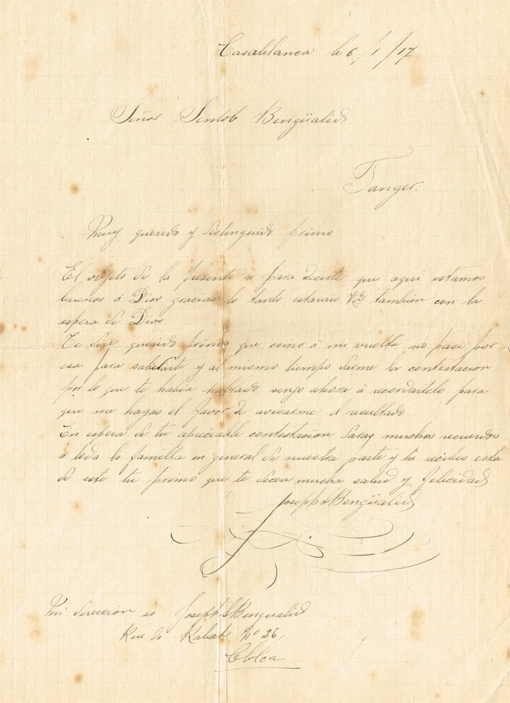 Casablanca le 6/1/17
Señor Semtob Bengüalid
Tanger.
Muy querido y distinguido primo
El objeto de la presente es para decirte que aqui estamos
buenos á Dios gracias lo tanto estarais Vds tambien con la
espera de Dios.
Te dire querido primo que como á mi vuelta no pasé por
esa para saludarte y al mismo tiempo darme la contestacion
por lo que te habia hablado vengo ahora á recordartelo para
que me hagas el favor de avisarme el resultado
En espera de tu apreciable contestacion daras muchos recuerdos
á toda la familla en general de nuestra parte y tu recibes esta
de este tu primo que te desea mucha salud y felicidad
Joseph Bengüalid
Mi direccion es Joseph Bengualid
Rue de Rabat Nº 26,
Cblca